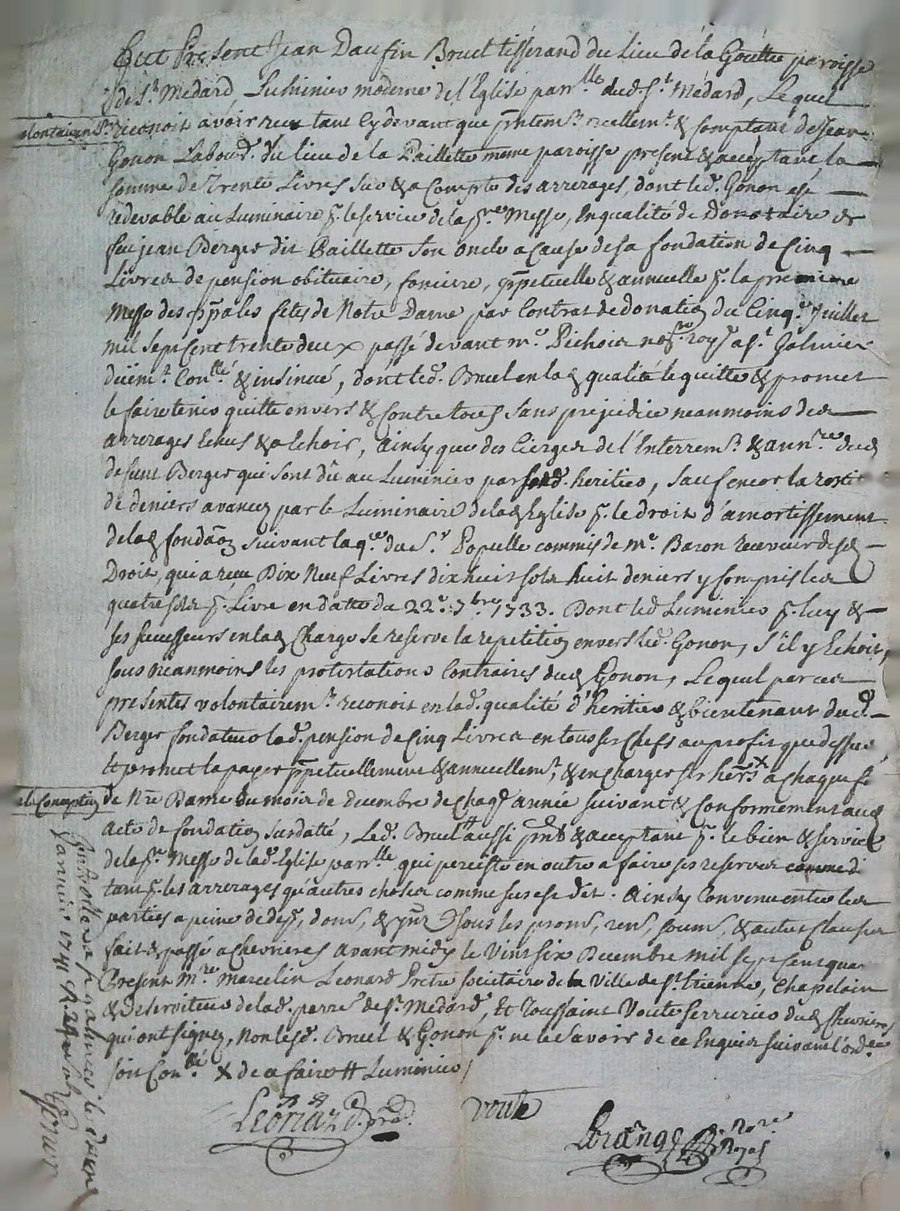 Fut Présent Jean Daufin Bruel tisserand du Lieu de la Goutte paroisse
de St. Médard Luminier moderne de l'Eglise parr.lle dud. St. Médard, Lequel
volontairem.t reconoit avoir reçu tant Cy devant que p̄ntem.t réellem.t & Comptant de Jean
Gonon Labour.r du lieu de la Paillette même paroisse présent & acceptant la
somme de Trente Livres sur & a Compte des arrerages, dont led. Gonon est
redevable au Luminaire p.r le service de la p.re Messe, En qualité de Donataire de
feu jean Berger dit Paillette Son oncle a Cause de sa fondation de Cinq
Livres de pension obituaire, fonciere, p̄petuelle & annuelle p.r la premiere
Messe des p̄p̄ales fetes de Notre Dame par Contrat de donation du Cinq.e Juillet
mil Sept Cent trente deux passé devant m.e Pichois no.re roy.l a St. Galmier
duëm.t Con.llé & insinué, dont led. Bruel en lad. qualité le quitte & promet
le faire tenir quitte envers & Contre tous sans préjudice neanmoins des
arrerages Echus & a Echoir, Ainsy que des Cierges de l'Interrem.t & ann.re dud.
defunt Berger qui sont dû au Luminier par sond. heritier, Sauf encor la
de deniers avancez par le Luminaire de lad. Eglise p.r le droit d'amortissement
de lad. fondãon suivant la q.ce du S.r Popelle commis de m.e Baron receveur desd.
Droits, qui a reçu Dix Neuf Livres dix huit sols huit deniers y Compris les
quatre sols p.r Livre en datte du 22.e 7.bre 1733. Dont led. Luminier p.r luy &
ses successeurs en lad. Charge se reserve la repetition envers led. Gonon, S'il y Echoit,
sous neanmoins les protestations Contraires dud. Gonon, Lequel par ces
présentes volontairem.t reconoit en lad. qualité d'héritier & bientenant dud.
Berger fondateur lad. pension de Cinq Livres en tous ses Chefs au profit que dessus
et promet la payer p̄petuellement & annuellem.t, & en Charger ses hers × a Chaque fête
de la Conception de N.re Dame du mois de decembre de Chaq.e année suivant & Conformément aud.
acte de fondation Susdatté, Led. Bruel # aussi p̄nt & acceptant p.r le bien & service
de la p.re Messe de lad. Eglise parr.lle qui persiste en outre a faire ses reserves
tant p.r les arrerages qu'autres choses comme sus est dit. Ainsy Convenu entre les
parties a peine de dep., dom., & sous les prom., ren., soum., & autres Clauses
fait & passé a Chevrieres avant midy le Vint six Decembre mil sept cent qua
Present M.re Marcelin Leonard Prêtre Societaire de la Ville de St. Etienne, Chapelain
& Deserviteur de lad. parr.e de St. Médard, Et Toussaint Voute Serrurier dud. Chevrieres
qui ont Signez, Non lesd. Bruel & Gonon p.r ne le savoir de ce Enquis suivant l'ord.ce
soit Con.llé × de ce faire # Luminier
Leonard p.re
voute
Lorange No.re Royal
Con.llé a St. galmier le
Janvier 1741